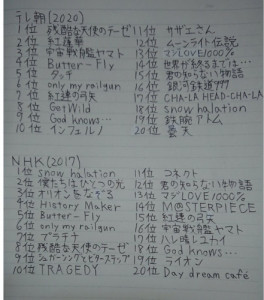 テレ朝(2020)
1位 残酷な天使のテーゼ
2位 紅蓮華
3位 宇宙戦艦ヤマト
4位 Butter-Fly
5位 タッチ
6位 only my railgun
7位 紅蓮の弓矢
8位 Get Wild
9位 God knows...
10位 インフェルノ
11位 サザエさん
12位 ムーンライト伝説
13位 マジLOVE1000%
14位 世界が終るまでは…
15位 君の知らない物語
16位 銀河鉄道999
17位 CHA-LA HEAD-CHA-LA
18位 snow halation
19位 鉄腕アトム
20位 曇天
NHK(2017)
1位 snow halation
2位 僕たちはひとつの光
3位 オリオンをなぞる
4位 History Maker
5位 Butter-Fly
6位 only my railgun
7位 プラチナ
8位 残酷な天使のテーゼ
9位 シュガーソングとビターステップ
10位 TRAGEDY
11位 コネクト
12位 君の知らない物語
13位 マジLOVE1000%
14位 M@STERPIECE
15位 紅蓮の弓矢
16位 宇宙戦艦ヤマト
17位 ハレ晴レユカイ
18位 God knows...
19位 ライオン
20位 Daydream café